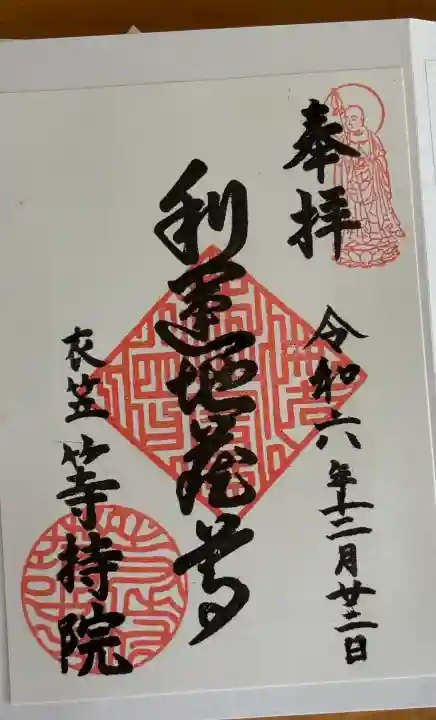 奉拝
令和六年十二月廿三日
利運地蔵尊
衣笠 等持院